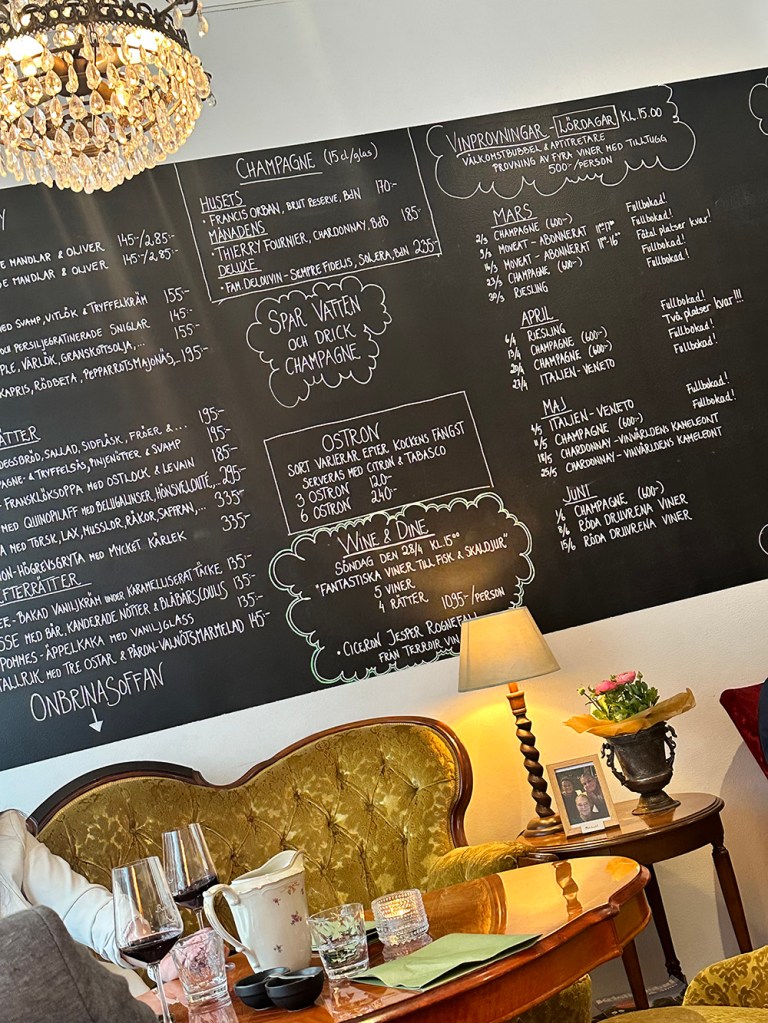 Y
E MANDLAR & OLIVER 145:-/2,85:-
E MANDLAR & OLIVER 145:-/2,85:-
MED SVAMP, VITLÖK & TRYFFELKRÄM 155:-
OCH PERSILJEGRATINERADE SNIGLAR 145:-
PLE, VÅRLÖK, GRANSKOTTSOLJA,... 155:-
KAPRIS, RÖDBETA, PEPPARROTSMAJONÄS, 195:-
ÄTTER
BRÖD, SALLAD, SIDFLÄSK, FRÖER &.... 195:-
PAGNE- & TRYFFELSÅS, PINJENÖTTER & SVAMP 195:-
- FRANSKLÖKSOPPA MED OSTLOCK & LEVAIN 185:-
MED QUINOPILAFF MED BELUGALINSER, HÖNSVELOUTÉ,... 295:-
A MED TORSK, LAX, MUSSLOR, RÄKOR, SAFFRAN,... 335:-
ON-HÖGREVSGRYTA MED MYCKET KÄRLEK 335:-
EFTERRÄTTER
- BAKAD VANILJKRÄM UNDER KARAMELLISERAT TÄCKE 135:-
SSE MED BÄR, KANDERADE NÖTTER & BLÅBÄRSCOULIS 135:-
POMMES - ÄPPELKAKA MED VANILJGLASS 135:-
TALLRIK MED TRE OSTAR & PÄRON-VALNÖTSMARMELAD 145:-
ONBRINASOFFAN
CHAMPAGNE (15cl/glas)
HUSETS
• FRANCIS ORBAN, BRUT RESERVE, BdN 170:-
MÅNADENS
• THIERRY FOURNIER, CHARDONNAY, BdB 185:-
DELUXE
• FAM DELOUVIN - SEMPRE FIDELIS, SOLERA, BdN 235:-
SPAR VATTEN
OCH DRICK
CHAMPAGNE
OSTRON
SORT VARIERAR EFTER KOCKENS FÅNGST
SERVERAS MED CITRON & TABASCO
3 OSTRON 120:-
6 OSTRON 240:-
WINE & DINE
SÖNDAG DEN 28/4 KL.15⁰⁰
"FANTASTISKA VINER TILL FISK & SKALDJUR"
5 VINER
4 RÄTTER 1095:-/PERSON
• CICERON JESPER
FRÅN TERROIR VIN
VINPROVNINGAR - LÖRDAGAR KL.15.00
VÄLKOMSTBUBBEL & APTITRETARE
PROVNING AV FYRA VINER MED TILLTUGG
500:-/PERSON
MARS
2/3 CHAMPAGNE (600:-) Fullbokad!
MOVEAT - ABONNERAT Fullbokad!
16/3 MOVEAT - ABONNERAT Fåtal platser kvar!
23/3 CHAMPAGNE (600:-) Fullbokad!
30/3 RIESLING Fullbokad!
APRIL
6/4 RIESLING Fullbokad!
13/4 CHAMPAGNE (600:-) Två platser kvar!!!
20/4 CHAMPAGNE (600:-) Fullbokad!
27/4 ITALIEN-VENETO Fullbokad!
MAJ
4/5 ITALIEN-VENETO Fullbokad!
11/5 CHAMPAGNE (600:-) Fullbokad!
18/5 CHARDONNAY-VINVÄRLDENS KAMELEONT
25/5 CHARDONNAY-VINVÄRLDENS KAMELEONT
JUNI
1/6 CHAMPAGNE (600:-)
8/6 RÖDA DRUVRENA VINER
15/6 RÖDA DRUVRENA VINER